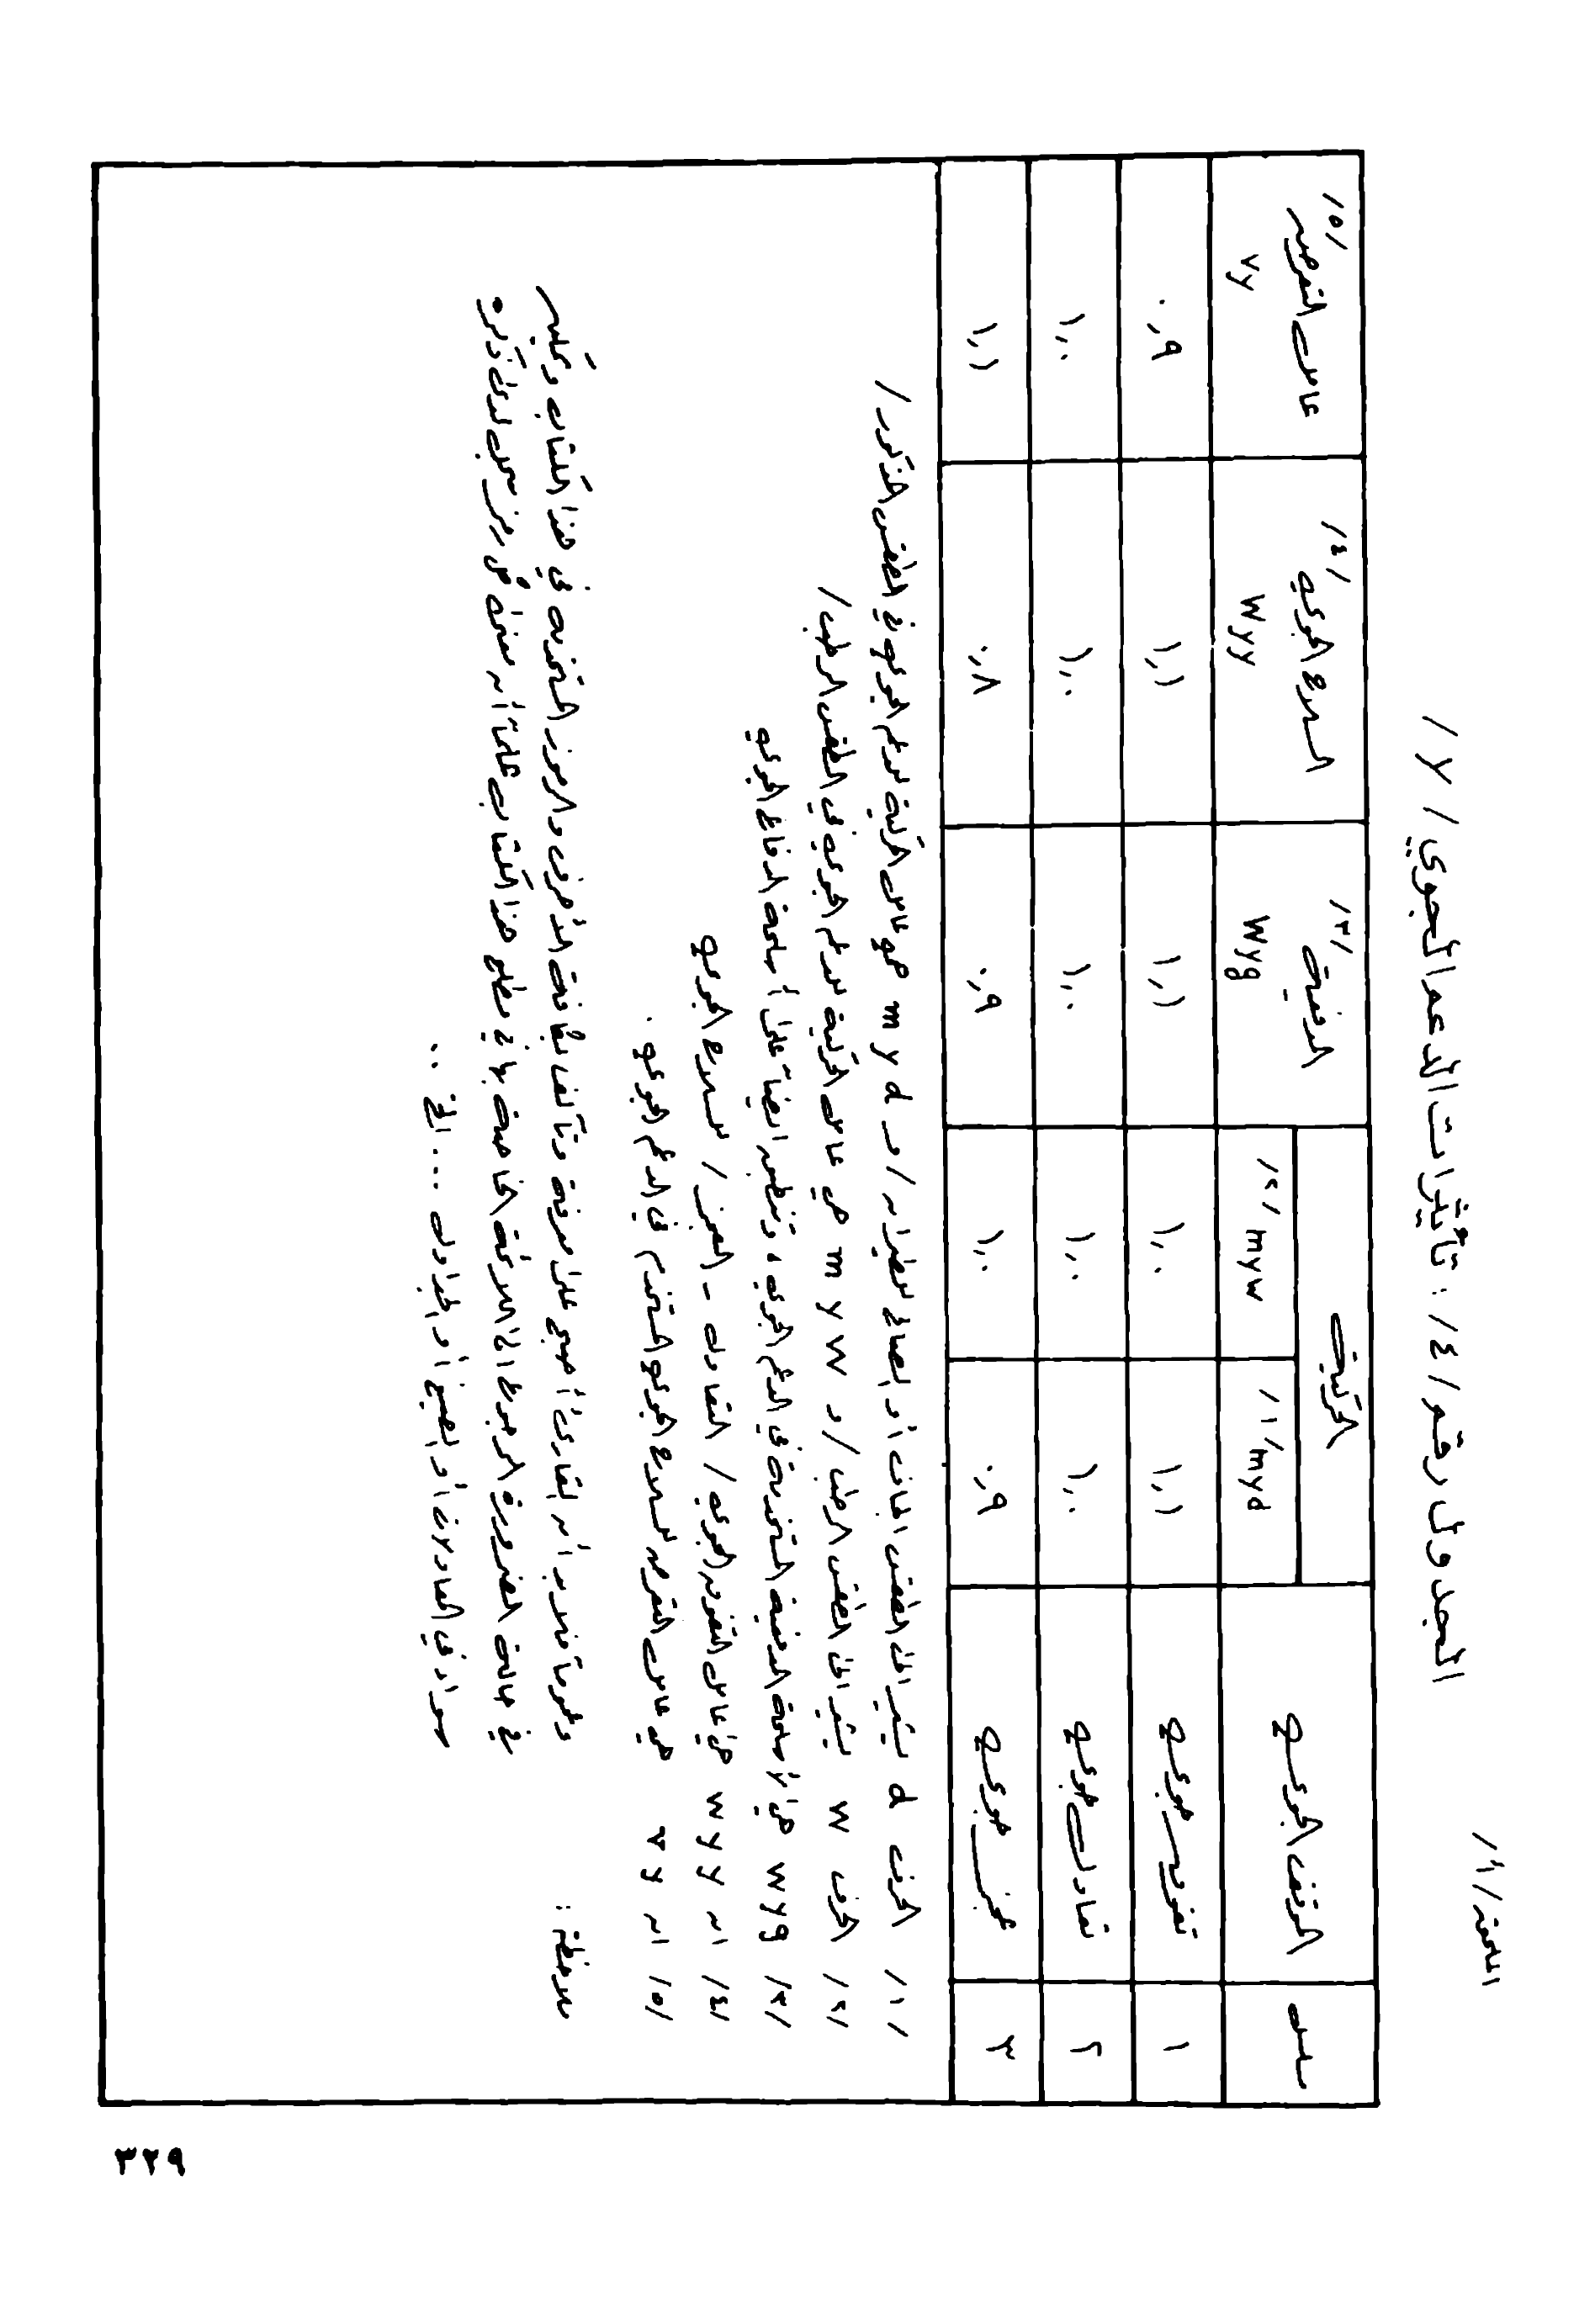 الملحق /أ/
الجدول رقم /٤/ : تأثيرات الدعم الجوي / y /
سلسل الموقف الجوي الحركية الدفعية /٣/ Wyg السلاح الجوي /٤/ Wyy عامل التعرض /٥/ Vy
myd /١/ myw /٢/
١ تفوق جوي ١,١ ١,٠ ١,١ ١,١ ٠,٩
٢ تعادل جوي ١,٠ ١,٠ ١,٠ ١,٠ ١,٠
٣ عجز جوي ٠,٩ ١,٠ ٠,٩ ٠,٨ ١,١
/١/ الحرف d يشير الى الطقس الجاف أو الصالح للطيران / و m y d هو عامل الحركية للدعم الجوي في الطقس المذكور /
/٢/ الحرف w يشير الى الطقس الرطب / و m y w هي عامل الحركية للدعم الجوي في الطقس الرطب /
/٣/ wyg هي أسلحة المدفعية المستخدمة في الدعم الجوي ، وتنطبق ايضاً على أسلحة الدفاع الجوي
/٤/ ان w y y هي عامل التفوق الجوي / التعادل - العجز / للسلاح الجوي
/٥/ ان v y هي عامل التعرض للسلاح الجوي المستخدم في الدعم الجوي .
ملاحظة : وعموماً فلا بد أن القارئ أصبح على معرفة وتآلف بكافة الأحرف والرموز المستخدمة في هذا الكتاب وعليه
في حالة الضرورة الرجوع الى اللائحة الخاصة بها في مطلع هذا الكتاب علماً أن معنى كل رمز سجل لدى ذكره
سواء في المعادلات أو الصيغ أو الجداول ... الخ ..
٣٢٩